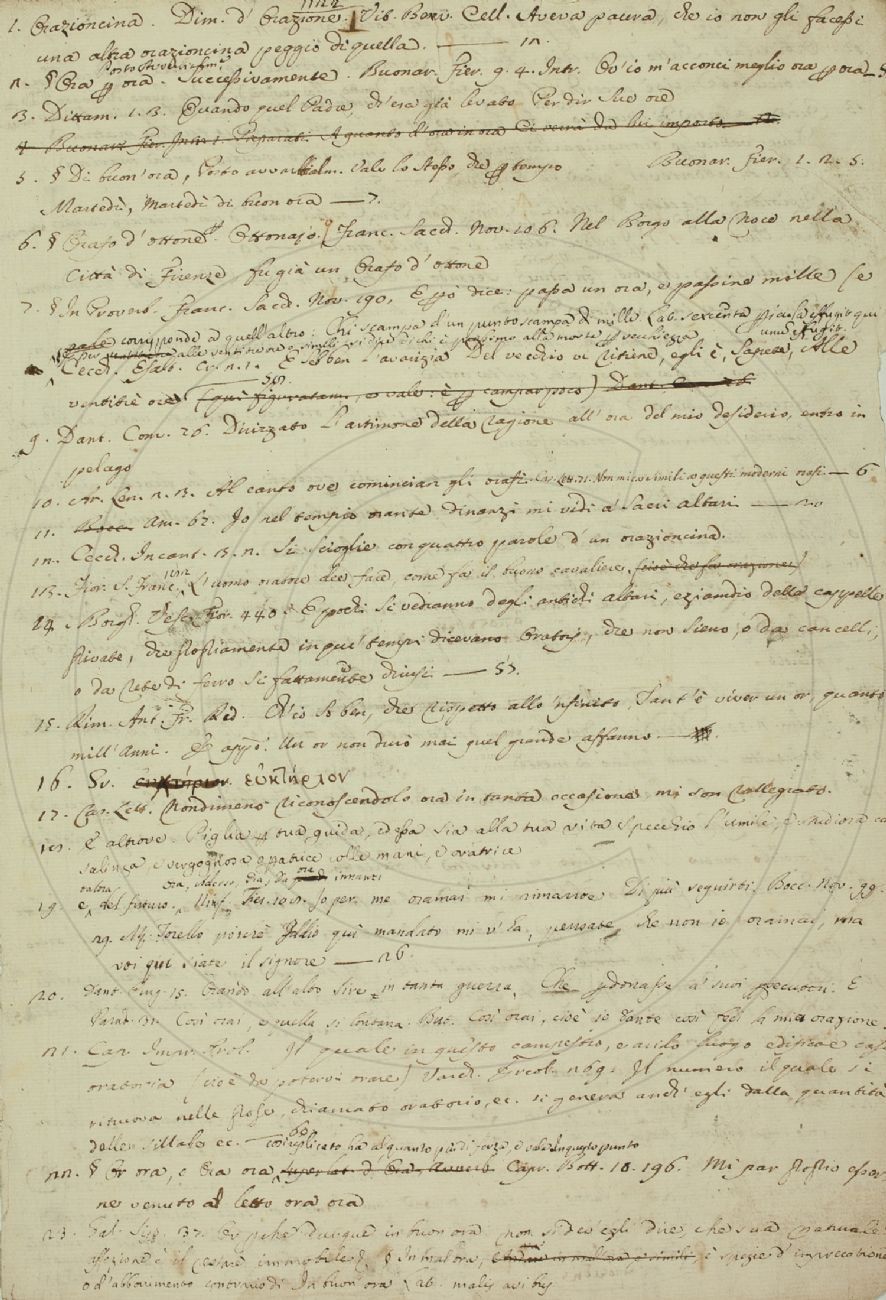 1. Orazioncina. Dim. d'Orazione. Vit. Benv. Cell. Aveva paura, che io non gli facessi
una altra orazioncina peggio di quella.
2. § Ora p ora. Successivamente. Buonar. Fier. 9. 4. Intr. Ov'io m'acconci meglio ora p ora
3. Dittam. 1. 13. Quando quel Padre, ch'era già levato Per dir sue ore
4. Buonar. Fier. Intr. Preparati. A quanto d'ora in ora Ci verrà da lui imposto
5. § Di buon'ora, Posto avverbialm. vale lo stesso, che p tempo Buonar. Fier. 1. 2. 5.
Martedì, Martedì di buon ora — 7.
6. § Orafo d'ottone. Ottonajo. Franc. Sacch. Nov. 106. Nel Borgo alla Noce nella
Città di Firenze fu già un Orafo d'ottone
7. § In Proverb. Franc. Sacch. Nov. 190. E però dice: passa un ora, e passine mille (e
corrisponde a quell'altro: Chi scampa d'un punto scampa di mille
Cecch. Esalt. Cr. E sebben l'avarizia Del vecchio vi ritiene, egli è, sapete, Alle
ventitrè ore
9. Dant. Conv. 26. Dirizzato l'artimone della ragione all'ora del mio desiderio, entro in
pelago
10. Ar. Len. 2. 3. Al canto ove cominciar gli orafi. Non mica simili a questi moderni orafi — 6
11. Am. 67. Io nel tempio orante dinanzi mi vidi a' sacri altari
12. Cecch. Incant. 3. 2. Si scioglie con quattro parole d'un orazioncina.
13. Fior. S. Franc. L'uomo oratore dee fare, come fa il buono cavaliere
14. Borgh. Vesc. Fior. 440. E pochi si vedranno degli antichi altari, eziandio delle cappelle
private, che propriamente in que' tempi dicevano Oratorj, che non sieno, o da cancelli,
o da rete di ferro sì fattamente chiusi — 57.
15. Rim. Ant. Fr. Red. Ch'io so ben, che rispetto allo 'nfinito, Tant'è viver un or, quanto
mill'Anni. E appo: Un or non durò mai quel grande affanno
16. Gr. εὐκτήριον
17. Car. Lett. Nondimeno riconoscendolo ora in tanta occasione mi son rallegrato.
18. E altrove. Piglia p tua guida, ed essa sia alla tua vita specchio l'umile, e studiosa ca
salinga e vergognosa operatrice colle mani, e oratrice
19. e del futuro. Ninf. Fies. Io per me oramai mi rimarrò Di più seguirti. Bocc. Nov. 99.
29. Mess. Torello poichè Iddio quì mandato mi v'ha, pensate, che non io oramai, ma
voi quì siate il signore — 26.
20. Dant. Purg. 15. Orando all'alto Sire in tanta guerra, Che pdonasse a' suoi psecutori. E
Parad. 31. Così orai, e quella sì lontana. But. Così orai, cioè io Dante così feci la mia orazione.
21. Cap. Impr. Prol. Il quale in questo campestro, e arido luogo edificò casa
oratoria (cioè da potervi orare) Varch. Ercol. 269. Il numero il quale si
ritrova nelle prose, chiamato oratorio, ec. si genera anch'egli dalla quantità
delle sillabe ec. — 60 così replicato ha alquanto più di forza, e vale In questo punto
22. § Or ora, e Ora ora, superlat. d'Ora, Avverb. Capr. Bott. 10. 196. Mi par proprio esser
ne venuto al letto ora ora
23. Gal. Sist. 37. Or pchè dunque in buon ora (non si dev'egli dire, che sua naturale
affezione è il restare immobile). § In mal ora, è spezie d'imprecazione
o d'abborrimento contrario di In buon ora. Lat. malis avibus